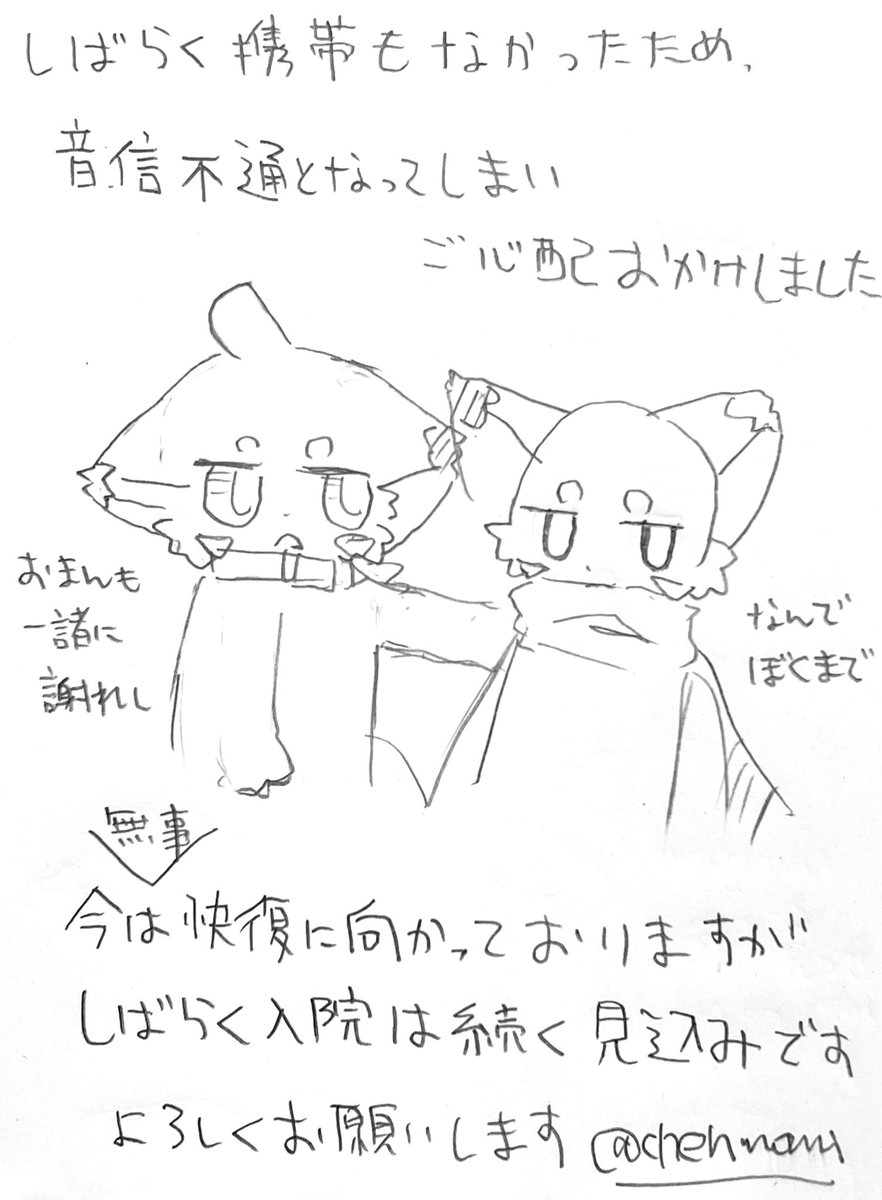 しばらく携帯もなかったため、
音信不通となってしまい
ご心配おかけしました
おまんも
一諸に
謝れし
なんで
ぼくまで
無事
今は快復に向かっておりますが
しばらく入院は続く見込みです
よろしくお願いします